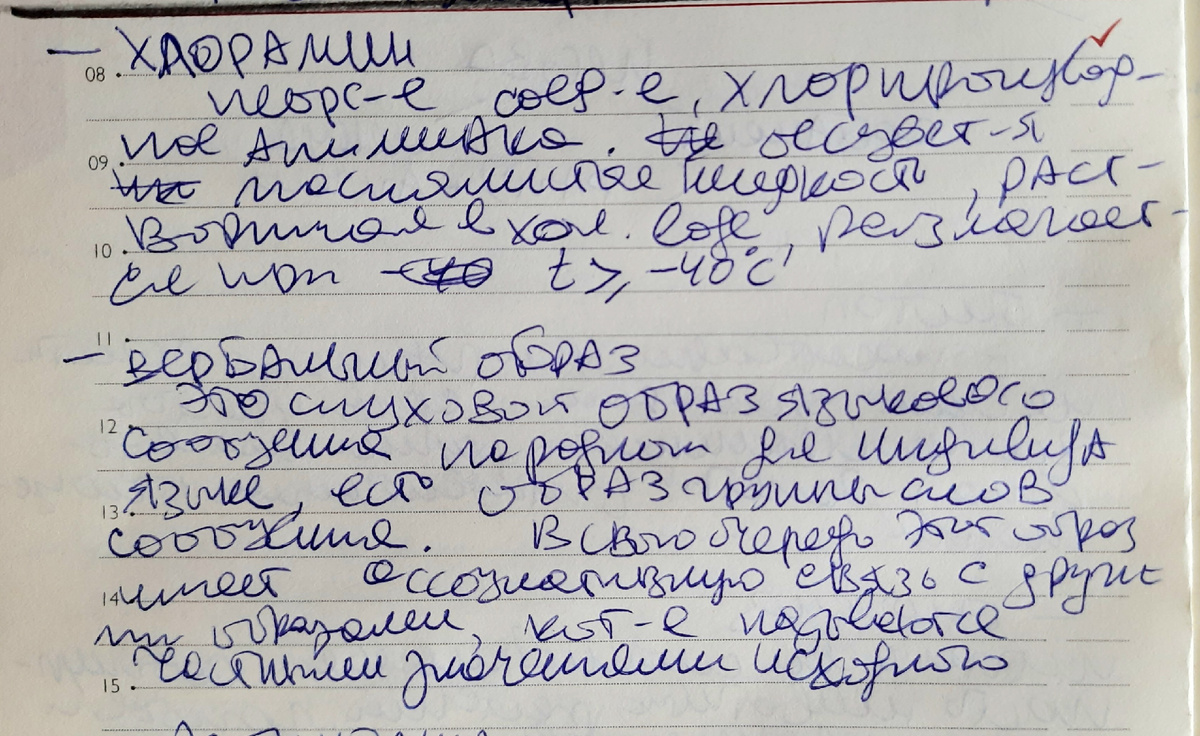 — ХЛОРАМИН
08
неорг-е соед-е, хлорпроизвод-
ное аммиака. бесцвет-я
09
маслянистая жидкость, раст-
воримая в хол. воде, разлагает-
10
ся при t ≥ -40°C
11
— ВЕРБАЛЬНЫЙ ОБРАЗ
Это слуховой ОБРАЗ языкового
12
сообщения на родном для индивида
языке, есть ОБРАЗ группы слов
13
сообщения. В свою очередь этот образ
имеет ассоциативную связь с други-
14
ми образами, кот-е называются
частными значениями исходного
15